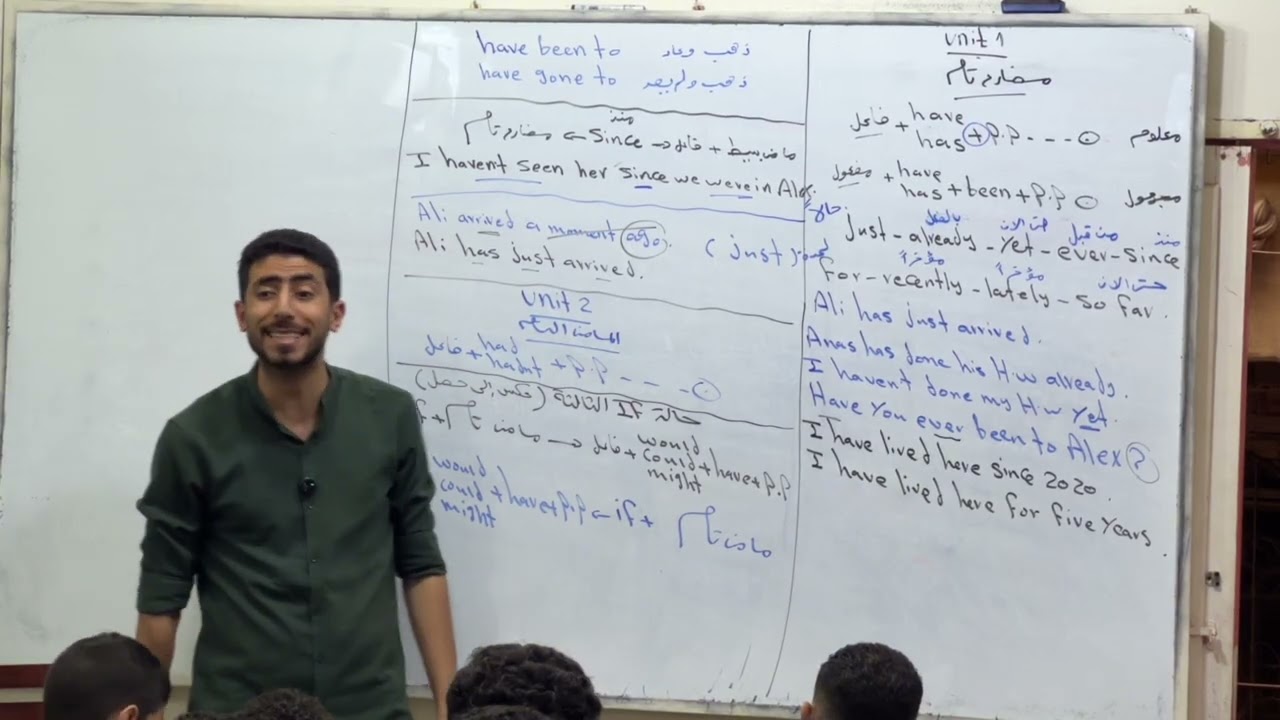 Unit 1
مضارع تام
معلوم فاعل + have
has + P.P - - - ⊙
مجهول مفعول + have
has + been + P.P ⊙
حالاً بالفعل حتى الآن من قبل منذ
just - already - yet - ever - since
مؤخراً مؤخراً حتى الآن
for - recently - lately - so far .
Ali has just arrived .
Anas has done his H.w already .
I havent done my H.w yet .
Have You ever been to Alex ?
I have lived here since 2020 .
I have lived here for five years .
have been to ذهب وعاد
have gone to ذهب ولم يعد
منذ
ماضى بسيط + فاعل → since ← مضارع تام
I havent seen her since we were in Alex.
Ali arrived a moment ago. ( just )
Ali has just arrived .
Unit 2
الماضى التام
فاعل + had
hadnt + P.P - - - ⊙
حالة IF الثالثة
ماضى تام → فاعل + would
could + have + P.P
might
would
could + have + P.P ← if + ماضى تام
might